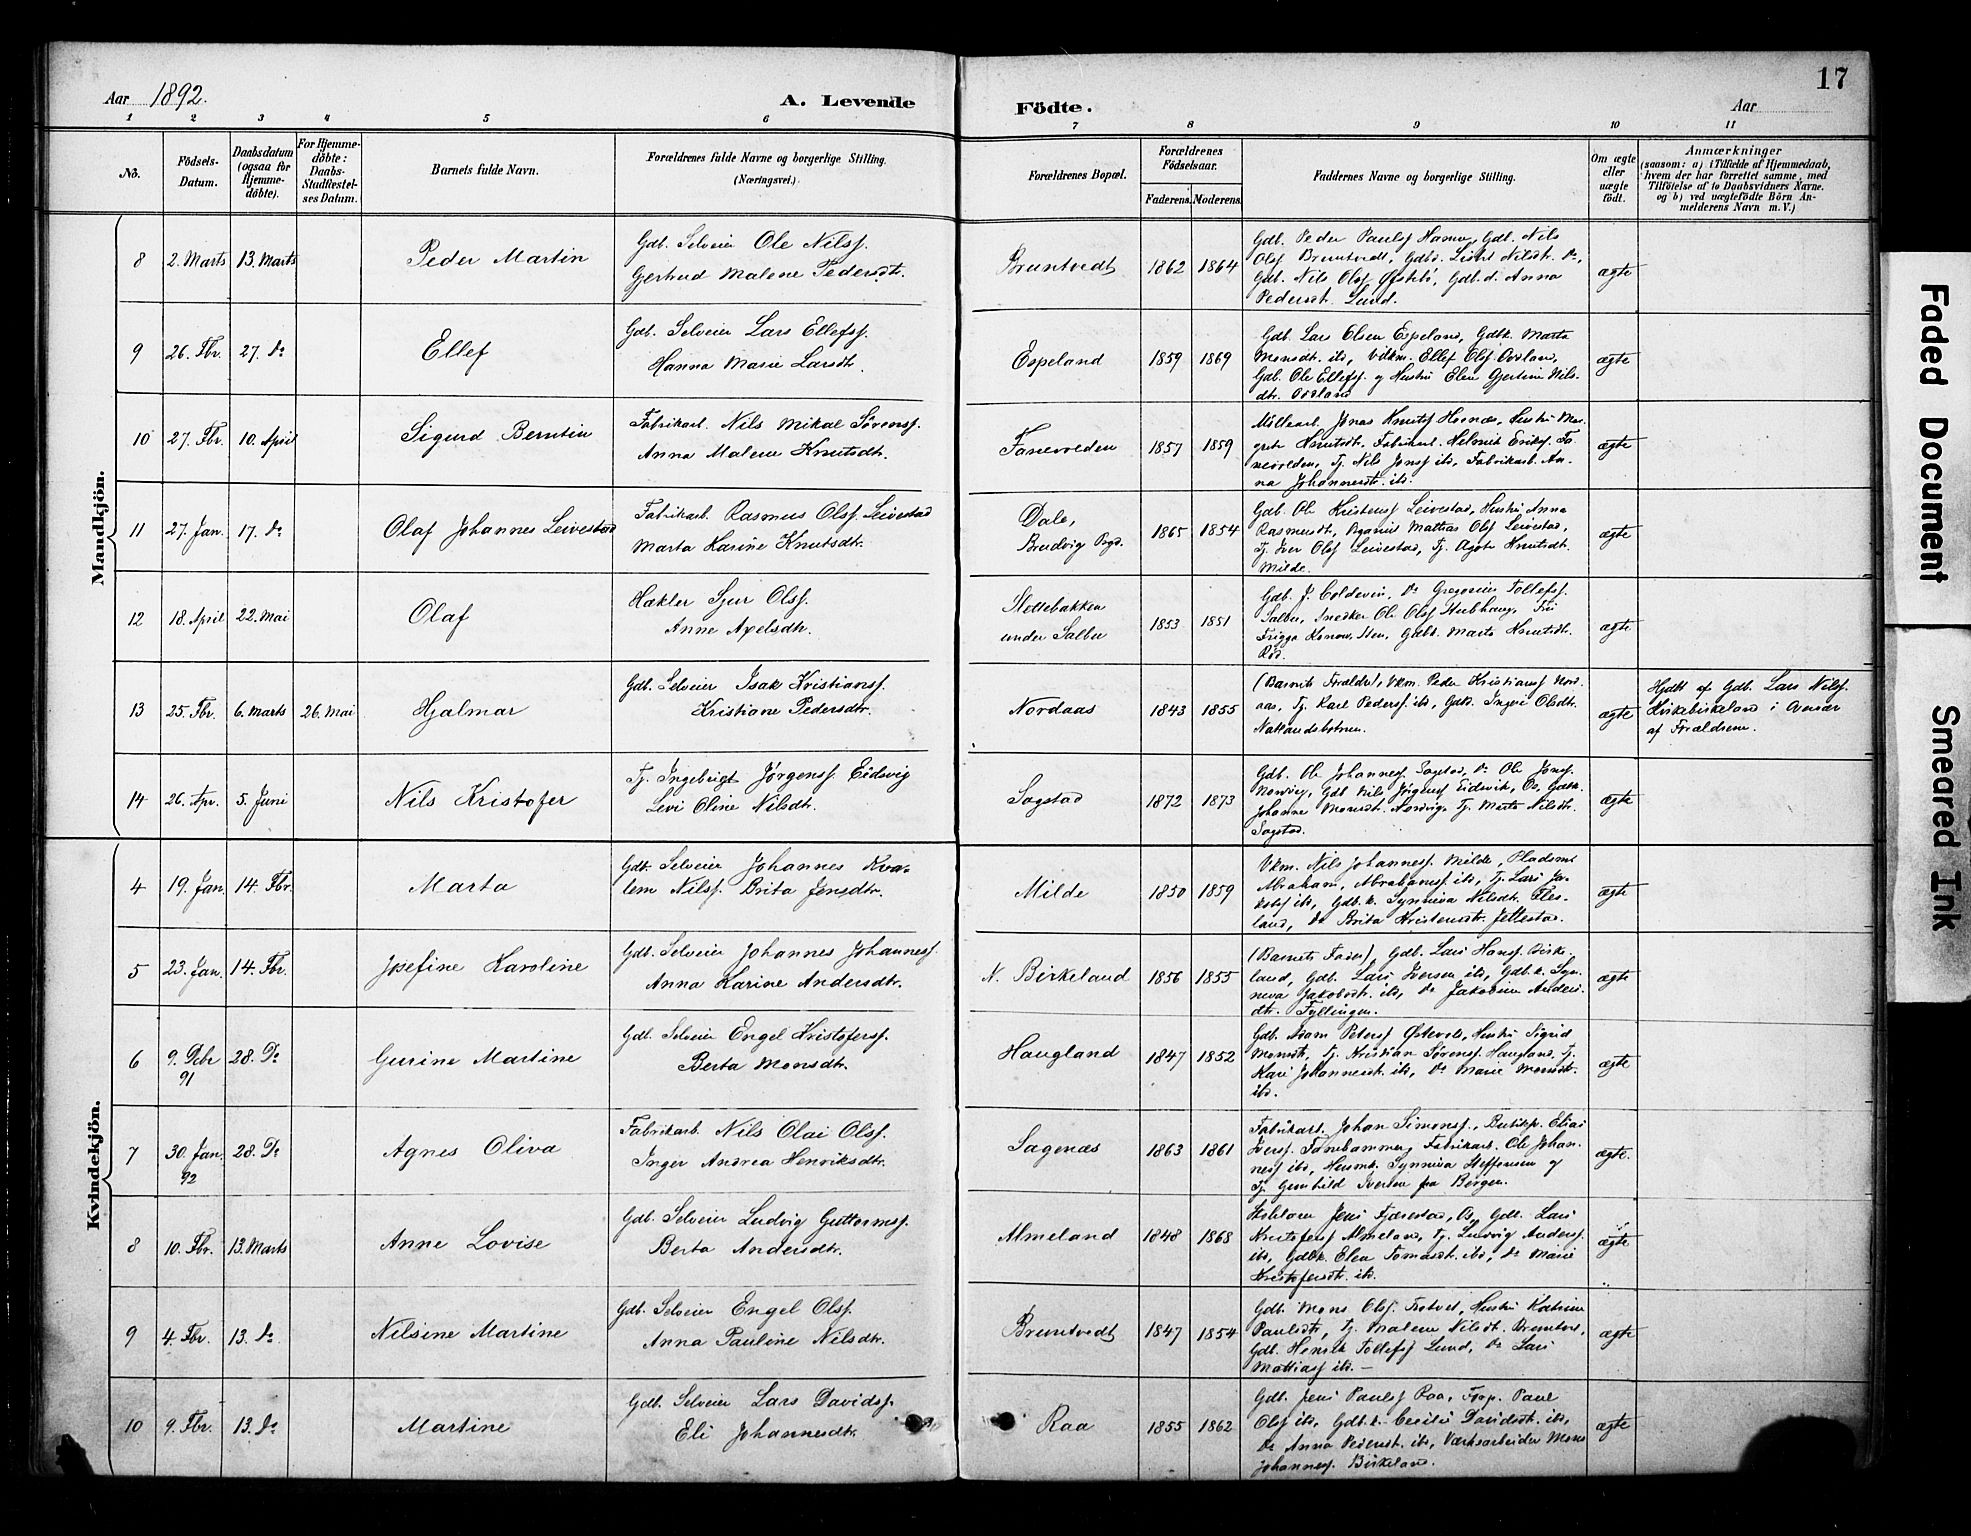 17
Aar 1892.
A. Levende
Födte.
Aar
1 2 3 4 5 6 7 8 9 10 11
No.
Födsels-
Datum.
Daabsdatum
(ogsaa for
Hjemme-
döbte).
For Hjemme-
döbte:
Daabs-
Stadfæstel-
ses Datum.
Barnets fulde Navn.
Forældrenes fulde Navne og borgerlige Stilling.
(Næringsvei.)
Forældrenes Bopæl.
Forældrenes
Födselsaar.
Faderens. Moderens.
Faddernes Navne og borgerlige Stilling.
Om ægte
eller
uægte
födt.
Anmærkninger
(saasom: a) i Tilfælde af Hjemmedaab,
hvem der har forrettet samme, med
Tilföielse af to Daabsvidners Navne.
og b) ved uægtefödte Börn An-
melderens Navn m. V.)
Mandkjön.
8 2. Marts 13. Marts Peder Martin
Gdb. Selveier Ole Nilsf.
Gertrud Malene Pedersdt.
Bruntvedt 1862 1864
Gdb. Peder Paulsf Hamre, Gdb. Nils
Olsf Bruntvedt, Gdbd. Nilsdt. Do,
Gdb. Nils Olsf Østebö, Gdb.d. Anna
Pedersdt. Lund.
ægte
9 26. Fbr. 27. Do Ellef
Gdb. Selveier Lars Ellefsf.
Hanna Marie Larsdtr.
Espeland 1859 1869
Gdb. Lars Olsen Espeland, Gdbk. Marta
Monsdt. ibd, Vdkm. Ellef Olsf. Ovrland,
Gdb. Ole Ellefsf. og Hustru Elen Gjertine Nils-
dtr. Ovrland
ægte
10 27. Fbr. 10. April Sigurd Berntin
Fabrikarb. Nils Mikal Sørensf.
Anna Malene Knutsdtr.
Fanevolden 1857 1859
Möllearb. Jonas Knutsf Hornæs, Hustru Mar-
grete Knutsdt. Fabrikarb. Helmik Eriksf. Fa-
nevolden, Tj. Nils Jonsf ibd, Fabrikarb. An-
na Johannesdt. ibd.
ægte
11 27. Jan. 17. Do Olaf Johannes Leivestad
Fabrikarb. Rasmus Olsf. Leivestad
Marta Karine Knutsdtr.
Dale,
Brudvig Pgd.
1865 1854
Gdb. Ole Kristensf Leivestad, Hustru Anna
Rasmusdt, Organist Mattias Olsf Leivestad,
Tj. Iver Olsf Leivestad, Tj. Agote Knutsdt.
Milde.
ægte
12 18. April 22. Mai Olaf
Hækler Sjur Olsf.
Anne Axelsdtr.
Slettebakken
under Salbu
1853 1851
Gdb. J. Coldevin, Do Gregorius Tollefsf.
Salbu, Snedker Ole Olsf Stubhaug, Frü
Frigga Konow, Sten, Gdbd. Marta Knutsdt.
Röd.
ægte
13 25. Fbr. 6. Marts 26. Mai Hjalmar
Gdb. Selveier Isak Kristiansf.
Kristiane Pedersdtr.
Nordaas 1843 1855
(Barnets Forældre), Vkm. Peder Kristiansf Nord-
aas, Tj. Karl Pedersf. ibd, Gdbk. Ingeri Olsdt.
Natlandsbotnen.
ægte
Hjdbt af Gdb. Lars Nilsf.
Kirkebirkeland i Overvær
af Forældrene.
14 26. Apr. 5. Juni Nils Kristofer
Tj. Ingebrigt Jörgensf. Eidsvig
Levi Oline Nilsdt.
Sogstad 1872 1873
Gdb. Ole Johannesf Sogstad, Do Ole Jonsf.
Nordvig, Gdb. Nils Jörgensf Eidsvik, Os, Gdbk.
Johanne Monsdt. Nordvig, Tj. Marta Nilsdt.
Sogstad.
ægte
Kvindekjön.
4 19. Jan. 14. Fbr. Marta
Gdb. Selveier Johannes Kva-
lem Nilsf. Brita Jensdtr.
Milde 1850 1859
Vkm. Nils Johannesf. Milde, Pladsmd
Abraham Abrahamsf ibd, Tj. Lars Ja-
kobsf ibd, Gdb.k. Synneva Nilsdt. Fles-
land, Do Brita Kristensdt. Jellestad.
ægte
5 23. Jan. 14. Fbr. Josefine Karoline
Gdb. Selveier Johannes Johannesf.
Anna Karine Andersdtr.
N. Birkeland 1856 1855
(Barnets Fader), Gdb. Lars Hansf. Birke-
land, Gdb. Lars Iversen ibd, Gdb.k. Syn-
neva Jakobsdt. ibd, Do Jakobine Anders-
dtr. Fyllingen.
ægte
6 9. Dcbr
91 28. Do Gurine Martine
Gdb. Selveier Engel Kristofersf.
Berta Monsdtr.
Haugland 1847 1852
Gdb. Adam Petersf Östervold, Hustru Sigrid
Monsdt, Tj. Kristian Sörensf. Haugland, Tj.
Kari Johannesdt. ibd, Do Marie Monsdt.
ibd.
ægte
7 30. Jan.
92 28. Do Agnes Oliva
Fabrikarb. Nils Olai Olsf.
Inger Andrea Henriksdtr.
Sagenæs 1863 1861
Fabrikarb. Johan Simonsf., Elias
Iversf. Fanehammer, Fabrikarb. Ole Johan-
nesf ibd, Synneva Steffensen og
Tj. Gunhild Iversen fra Bergen.
ægte.
8 10. Fbr. 13. Marts Anne Lovise
Gdb. Selveier Ludvig Guttormsf.
Berta Andersdtr.
Almeland 1848 1868
Jens Fjærestad, Os, Gdb. Lars
Kristofersf Almeland, Tj. Ludvig Andersf.
ibd, Gdbk. Elen Tomasdt. ibd, Do Marie
Kristofersdt. ibd.
ægte
9 4. Fbr. 13. Do Nilsine Martine
Gdb. Selveier Engel Olsf.
Anna Pauline Nilsdtr.
Bruntvedt 1847 1854
Gdb. Mons Olsf. Hustru Katrine
Paulsdtr, Tj. Malene Nilsdt. Bruntved,
Gdb. Henrik Tollefsf Lund, Do Lars
Mattiasf ibd. —
ægte
10 9. Fbr. 13. Do Martine
Gdb. Selveier Lars Davidsf.
Eli Johannesdtr.
Raa 1855 1862
Gdb. Jens Paulsf Raa, Forp. Paul
Olsf ibd, Gdb.k. Cecilie Davidsdt. ibd,
Do Anna Pedersdt. ibd, Værksarbeider Mons
Johannesf. Birkeland.
ægte
Faded Document
Smeared Ink